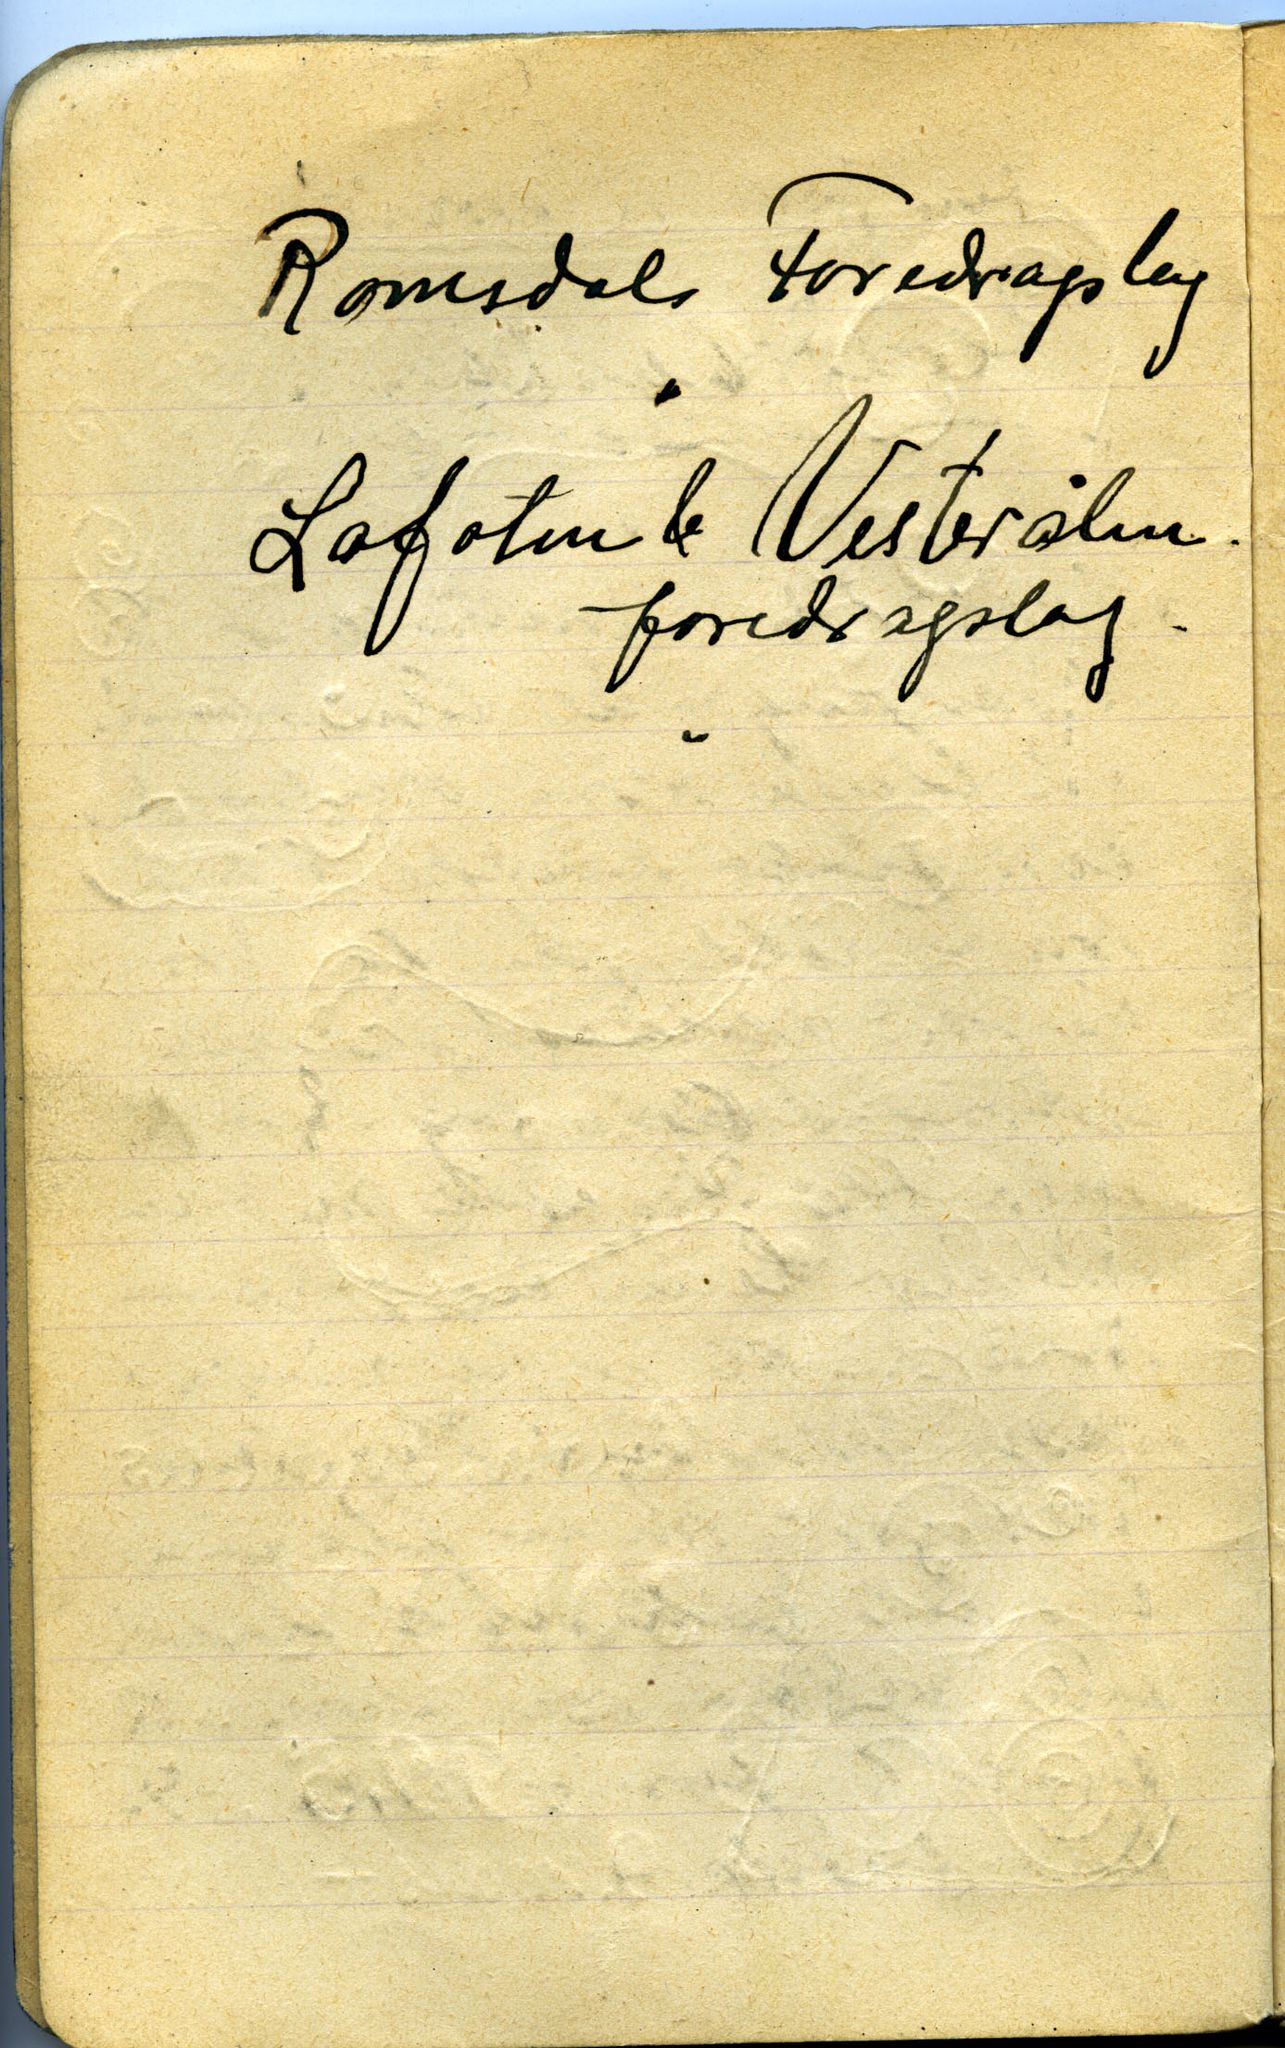 Romsdals Foredragslag
Lofoten & Vesterålen.
foredragslag.